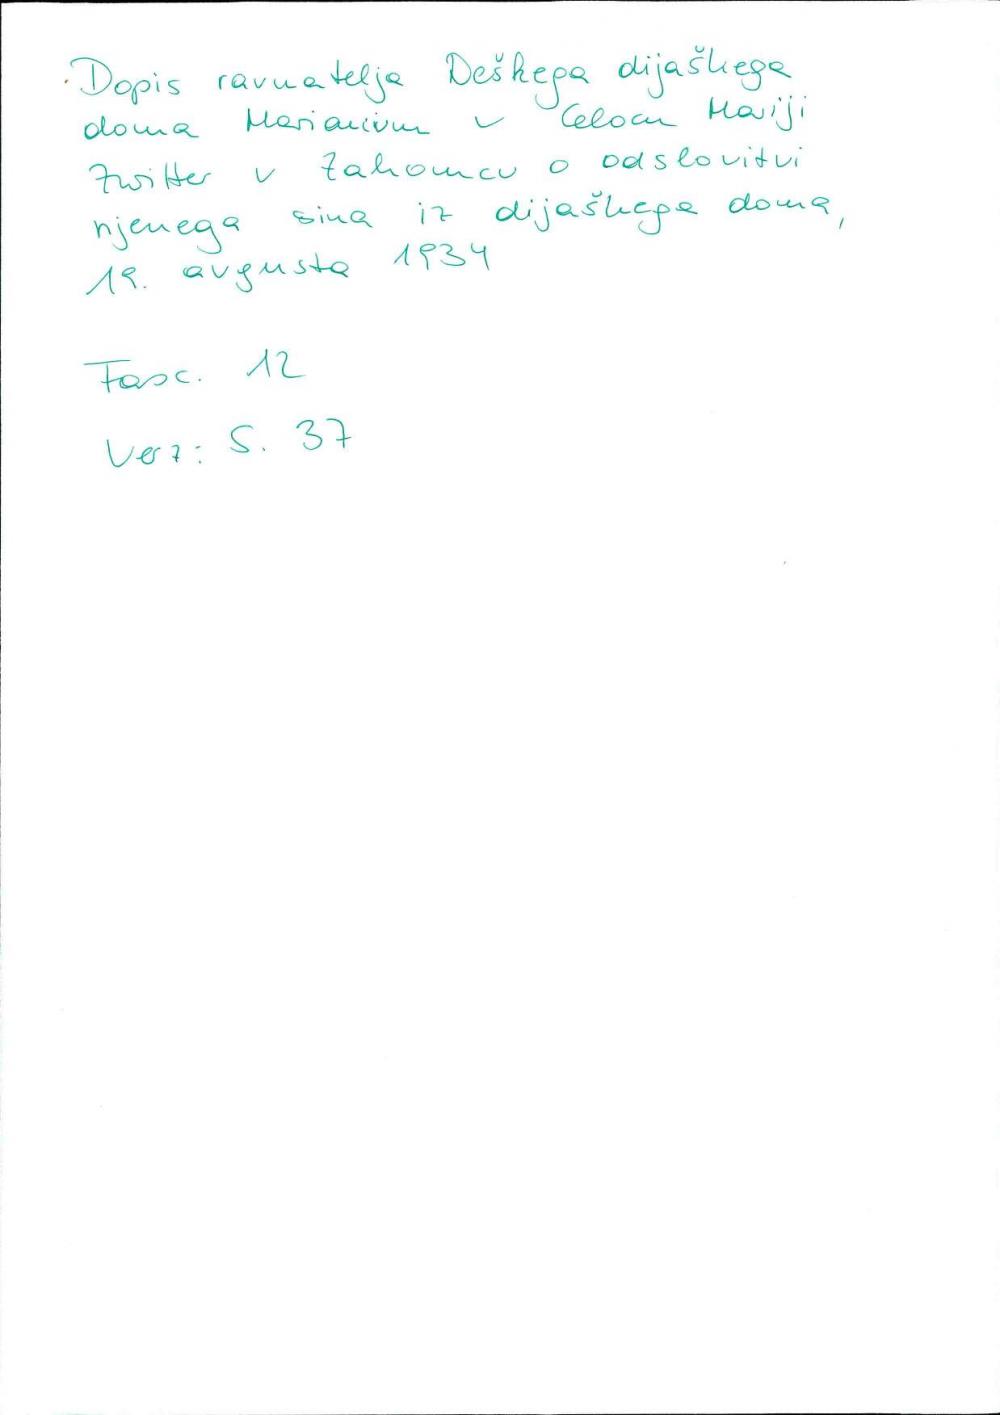 Dopis ravnatelja Deškega dijaškega
doma Marianum v Celovcu Mariji
Zwitter v Zahomcu o odslovitvi
njenega sina iz dijaškega doma,
19. avgusta 1934
Fasc. 12
Verz: S. 37